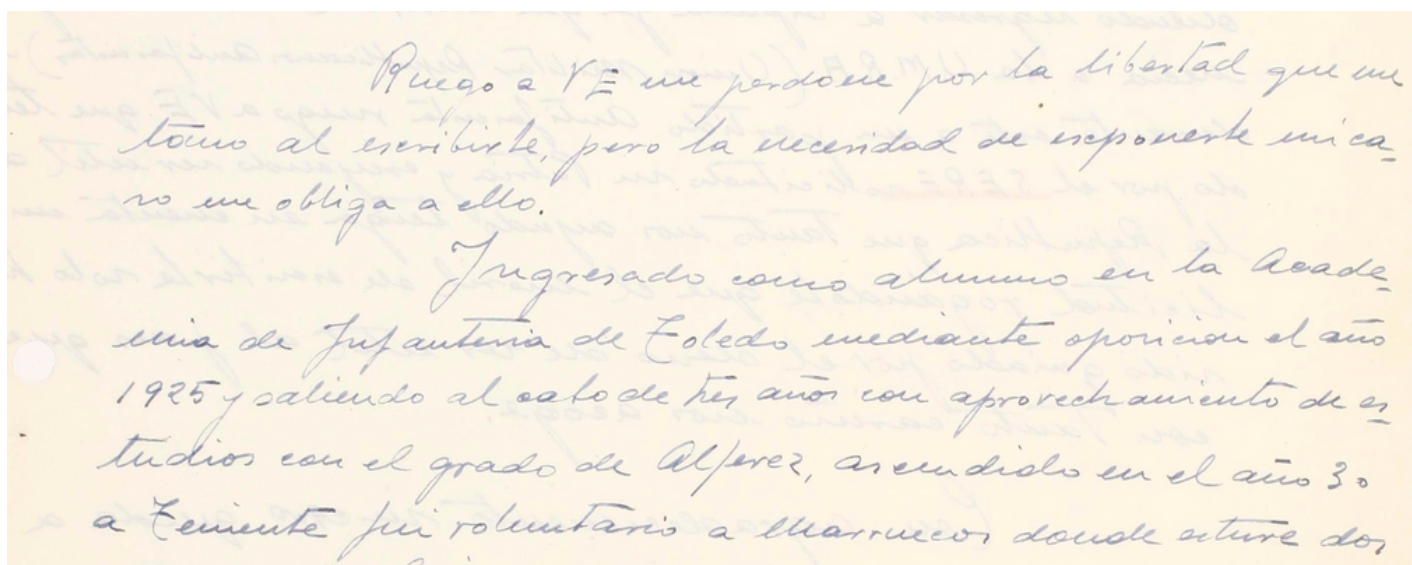 Ruego a VE me perdone por la libertad que me
tomo al escribirle, pero la necesidad de exponerle mi ca-
so me obliga a ello.
Ingresado como alumno en la Acade-
mia de Infanteria de Toledo mediante oposicion el año
1925 y saliendo al cabo de tres años con aprovechamiento de es-
tudios con el grado de Alferez, ascendido en el año 30
a Teniente fui voluntario a Marruecos donde estuve dos